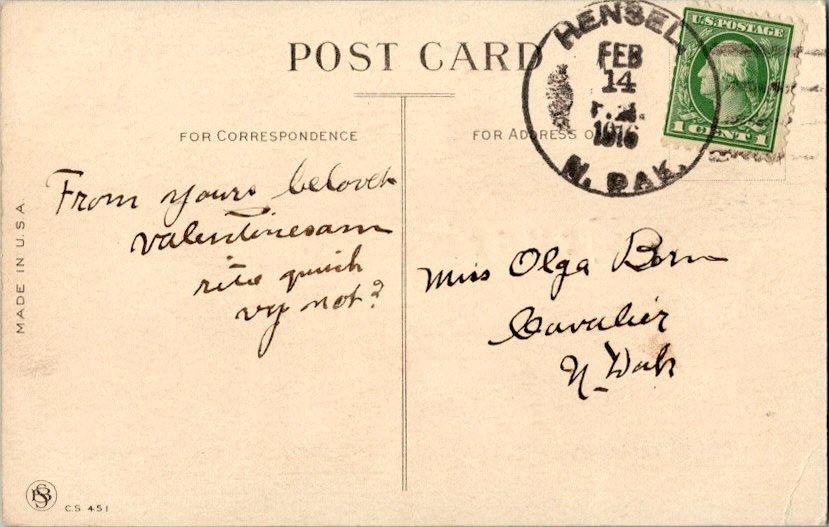 POST CARD
HENSEL
FEB
14
P.M.
1916
N. DAK.
U.S. POSTAGE
1 CENT 1
FOR CORRESPONDENCE
FOR ADDRESS O
From yours belover
valentinesam
rite quick
vy not?
Miss Olga Born
Cavalier
N. Dak
MADE IN U.S.A.
C.S. 451